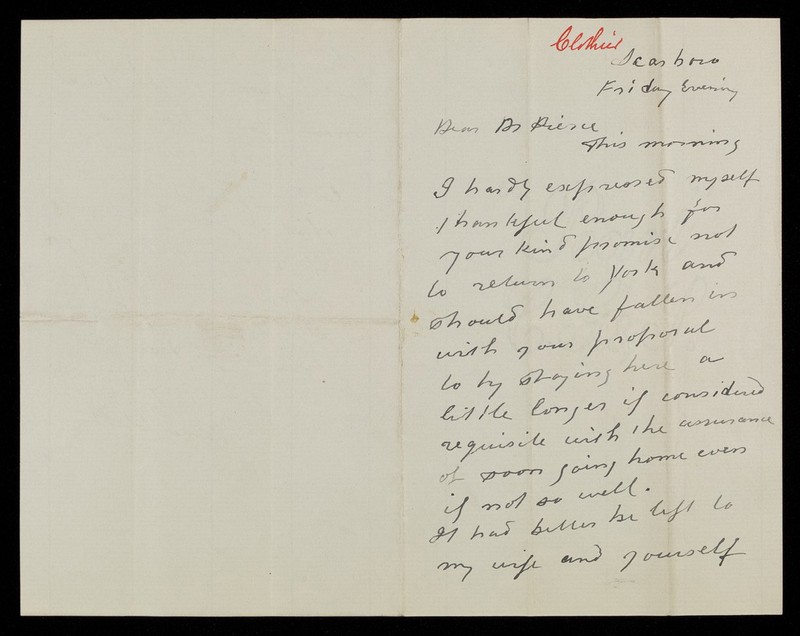 Clothier
Scarboro
Friday Evening
Dear Dr Pierce
This morning
I hardly expressed myself
thankful enough for
your kind promise not
to return to York and
should have fallen in
with your proposal
to try staying here a
little longer if considered
requisite with the assurance
of soon going home even
if not so well.
It had better be left to
my wife and yourself